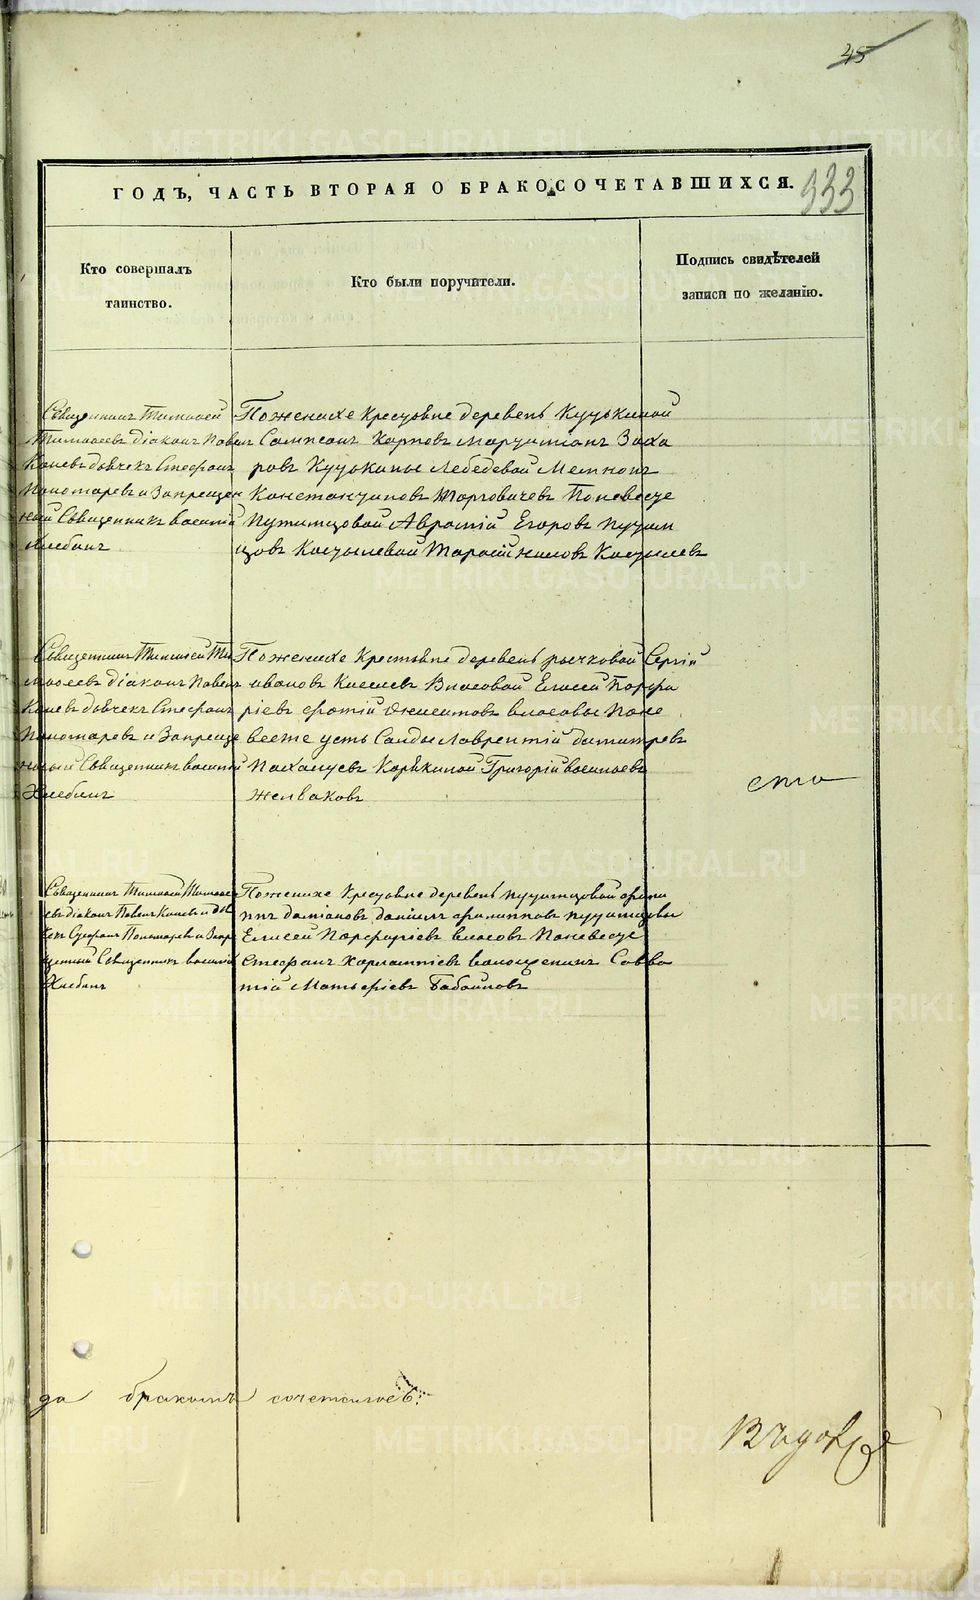 45
ГОДЪ, ЧАСТЬ ВТОРАЯ О БРАКОСОЧЕТАВШИХСЯ.
933
Кто совершалъ
таинство.
Кто были поручители.
Подпись свидѣтелей
записи по желанію.
Священникъ Тимофей
Тимофеевъ діаконъ Павелъ
Каневъ дьячекъ Стефанъ
Пономаревъ и Запрещен
ный Священникъ василій
Хлебинъ
По женихе крестьяне деревень Кутькиной
Сампсонъ Карповъ Мартимьянъ Заха
ровъ Кутькины Лебедевой
Константиновъ Торговичевъ По невесте
Путимцовой Авраамій Егоровъ Путим
цовъ Костылевой Тарасій Ниловъ Костылевъ
Священникъ Тимофей Ти
мофеевъ діаконъ Павелъ
Каневъ дьячекъ Стефанъ
Пономаревъ и Запреще
нный Священникъ василій
Хлебинъ
По женихе Крестьяне деревень рычковой Сергій
ивановъ Киселевъ Власовой Елисей Порфи
ріевъ власовы По не
весте усть Салды Лаврентій димитревъ
Корѣкиной Григорій васильевъ
Желваковъ
Священникъ Тимофей Тимофе
евъ діаконъ Павелъ Каневъ и дья
чекъ Стефанъ Пономаревъ и Запре
щенный Священникъ василій
Хлебинъ
По женихе Крестьяне деревень путимцовой фили
ппъ даміановъ даніилъ филипповъ путимцовы
Елисей Порфиріевъ власовъ По невесте
Стефанъ Харлампіевъ волощенинъ Савва
тій Матьфіевъ Бабайловъ
бракомъ сочетались.
METRIKI.GASO-URAL.RU